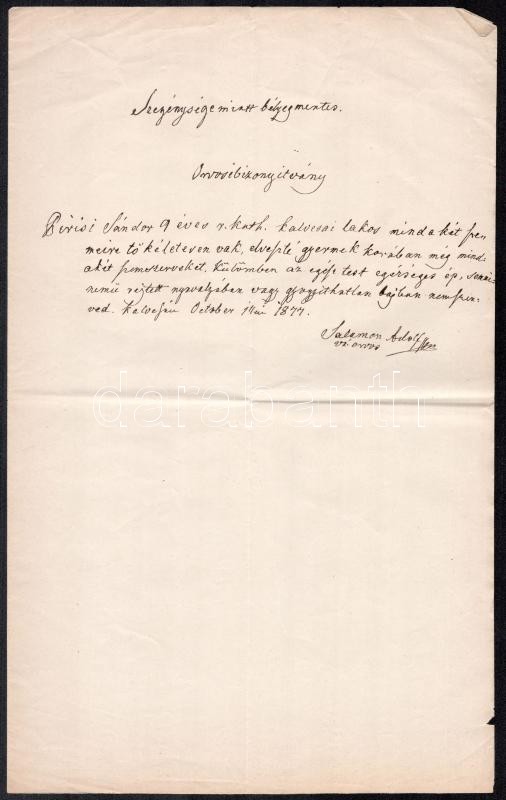 Szegénysége miatt bélyegmentes.
Orvosi bizonyitvány
Pirisi Sándor 9 éves r. kath. kalocsai lakos mind a két sze-
meire tökéletesen vak, elveszté gyermek korában még mind
a két szemszerveket. külömben az egész test egészséges ép, sem
nemű rejtett nyavalyában vagy gyógyithatlan bajban nem szen-
ved. Kalocsán October 1877.
Salamon Adolf
orvos
darabanth